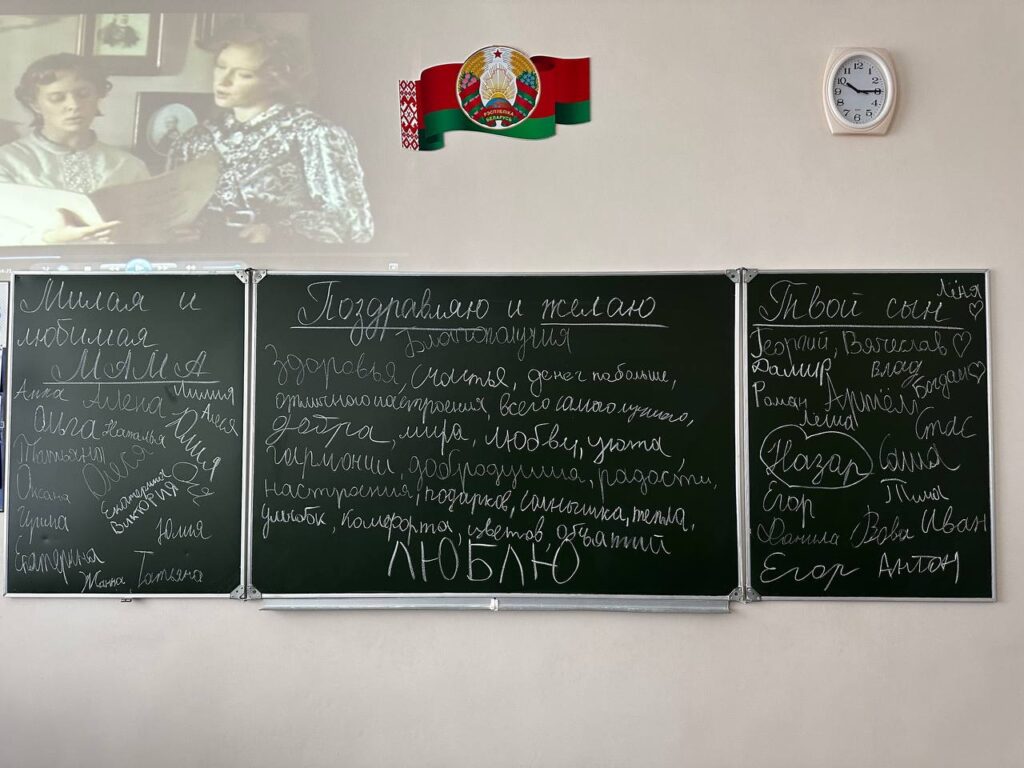 РЭСПУБЛІКА
БЕЛАРУСЬ
12
1
2
3
4
5
6
7
8
9
10
11
Милая и
любимая
МАМА
Анна Алена Лилия
Ольга Наталья Алеся
Татьяна Олеся Юлия
Оксана Екатерина Оля
Ирина ВИКТОРИЯ
Юлия
Екатерина
Жанна Татьяна
Поздравляю и желаю
Благополучия
Здоровья, счастья, денег побольше,
отличного настроения, всего самого лучшего,
добра, мира, любви, уюта,
гармонии, добродушия, радости,
настроения, подарков, солнышка, тепла,
улыбок, комфорта, цветов, объятий
ЛЮБЛЮ
Лёня
Твой сын
Георгий, Вячеслав
Дамир Влад
Роман Артём Богдан
Лёша Стас
Назар Саша
Егор Тима
Данила Вова Иван
Егор Антон